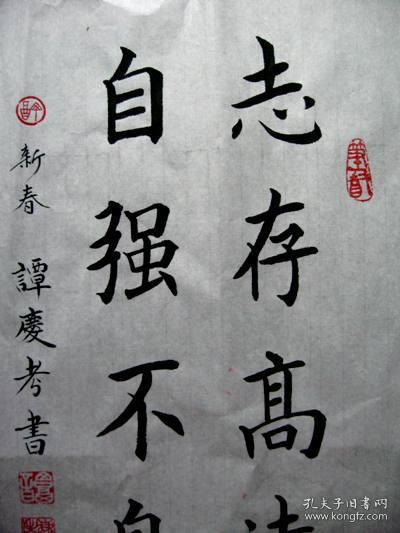 志存髙
自强不
新春 譚慶考書
孔夫子旧书网
www.kongfz.com